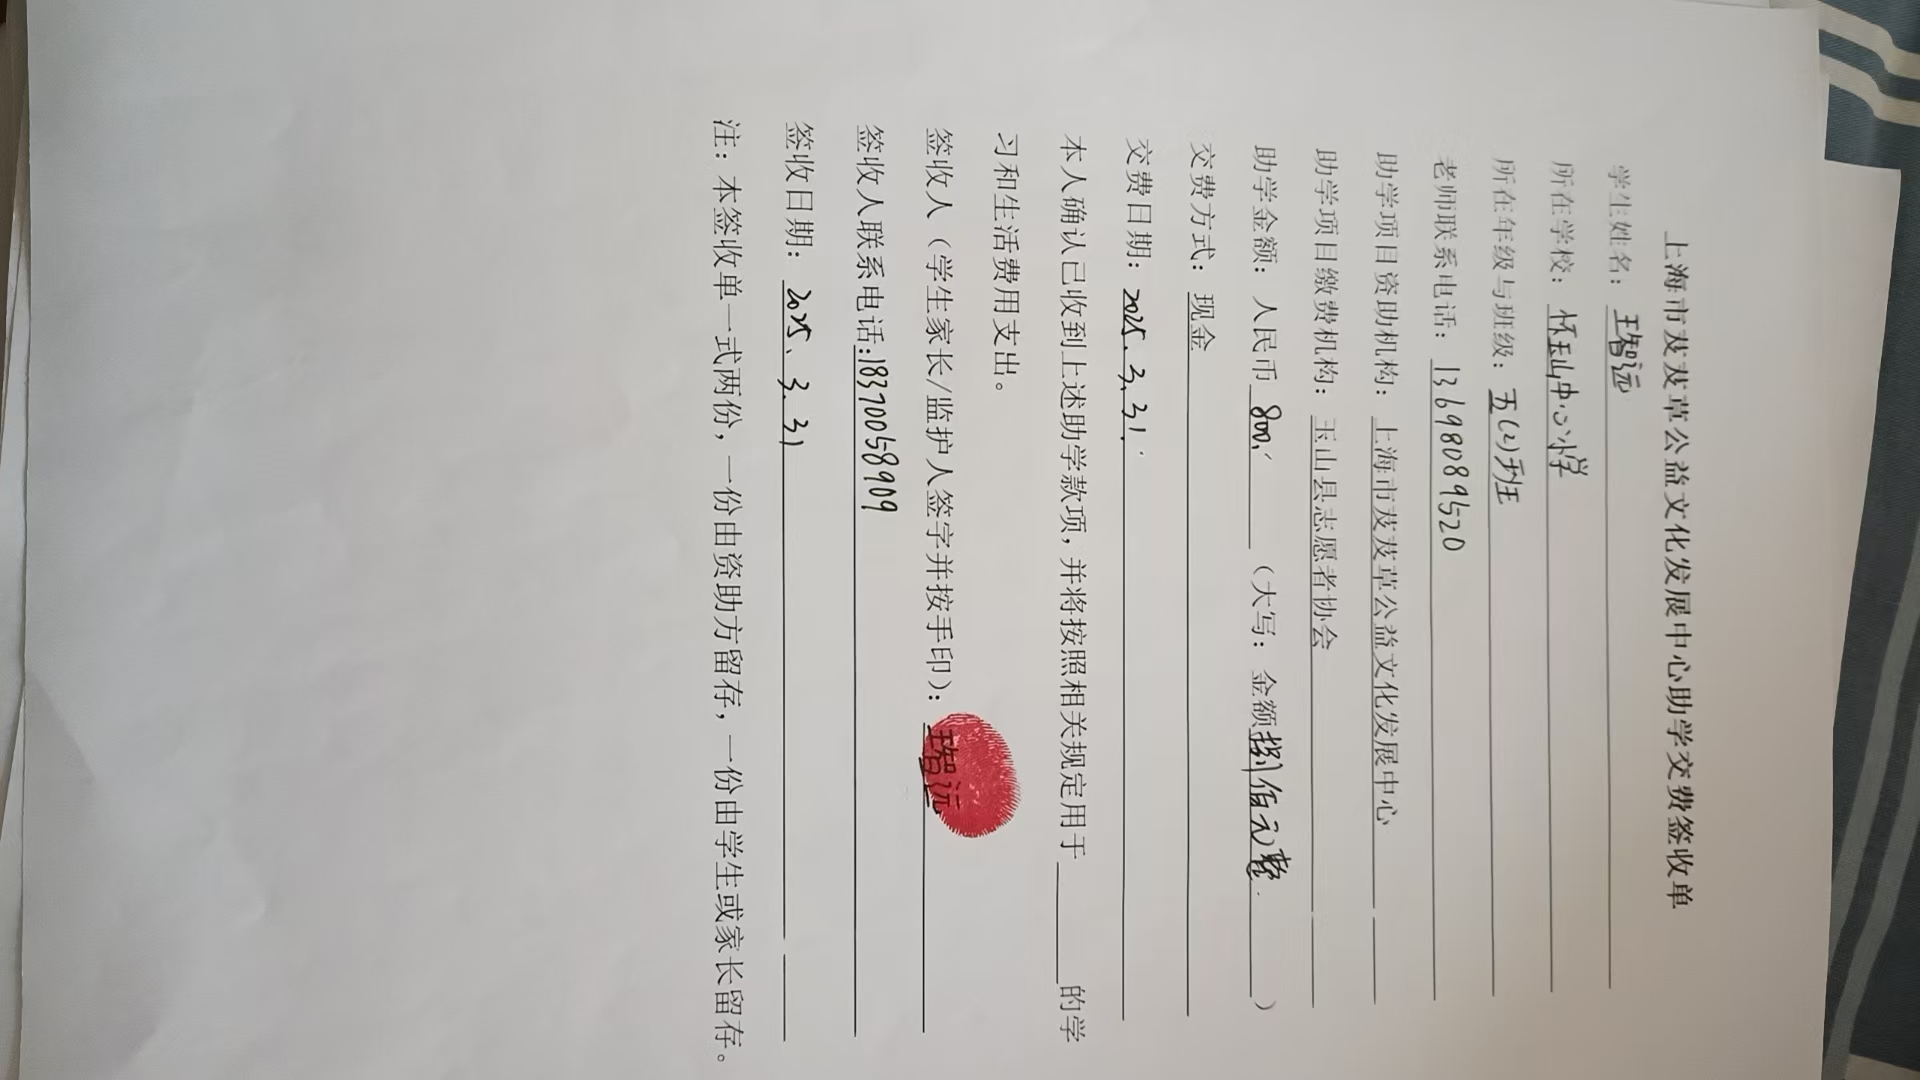 上海市芨芨草公益文化发展中心助学交费签收单
学生姓名：王智远
所在学校：怀玉山中心小学
所在年级与班级：五(2)班
老师联系电话：13698089520
助学项目资助机构：上海市芨芨草公益文化发展中心
助学项目缴费机构：玉山县志愿者协会
助学金额：人民币 800. （大写：金额捌佰元整.）
交费方式：现金
交费日期：2025、3、31.
本人确认已收到上述助学款项，并将按照相关规定用于______的学
习和生活费用支出。
签收人（学生家长/监护人签字并按手印）：王智远
签收人联系电话：18370058909
签收日期：2025、3、31
注：本签收单一式两份，一份由资助方留存，一份由学生或家长留存。